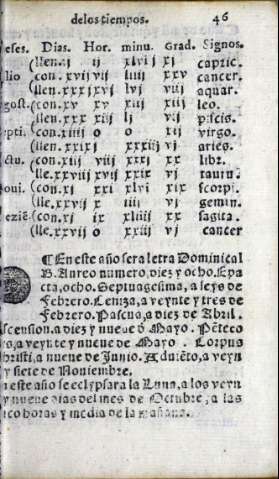 delos tiempos. 46
eses. Dias. Hor. minu. Grad. Signos.
(llen. ij ij xlvj xj capric.
lio (con. xvij vij iiij xxv cancer.
(llen. xxxj xvj lvj viij aquar.
gost. (con. xv xv xiij xiij leo.
(lle. xxx viij vj piscis.
pti. (con. xiiij o o xij virgo.
(llen. xxviij xxiij xxxiij vj aries.
ctu. (con. xiij viij xxj libr.
(lle. xxviij xxij xxix vj tauru.
oui. (con. xj xxj xlvj xix scorpi.
(lle. xxvij x iiij vj gemin.
eziē (con. xj ix xliiij xx sagita.
(lle. xxvij o xxiij vj cancer
¶ En este año sera letra Dominical
B. Aureo numero, diez y ocho. Epa
cta, ocho. Septuagesima, a seys de
febrero. Ceniza, a veynte y tres de
febrero. Pascua, a diez de Abril.
scension, a diez y nueue ð Mayo. Pēteco
s, a veynte y nueue de Mayo. Corpus
hristi, a nueue de Junio. Aduiēto, a veyn
y siete de Nouiembre.
n este año se eclypsara la Luna, a los veyn
y nueue dias del mes de Octubre, a las
nco horas y media de la mañana.